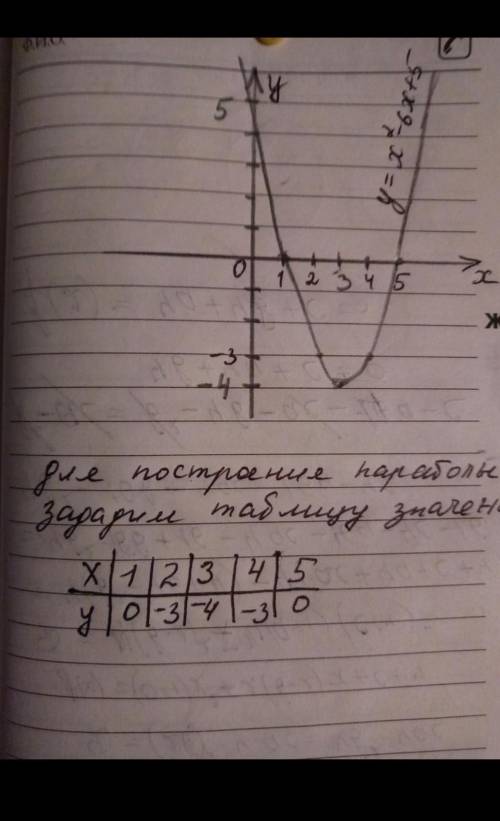 y
5
y = x² - 6x + 5
0 1 2 3 4 5 x
ж
-3
-4
для построения параболы
зададим таблицу
x | 1 | 2 | 3 | 4 | 5
y | 0 | -3 | -4 | -3 | 0